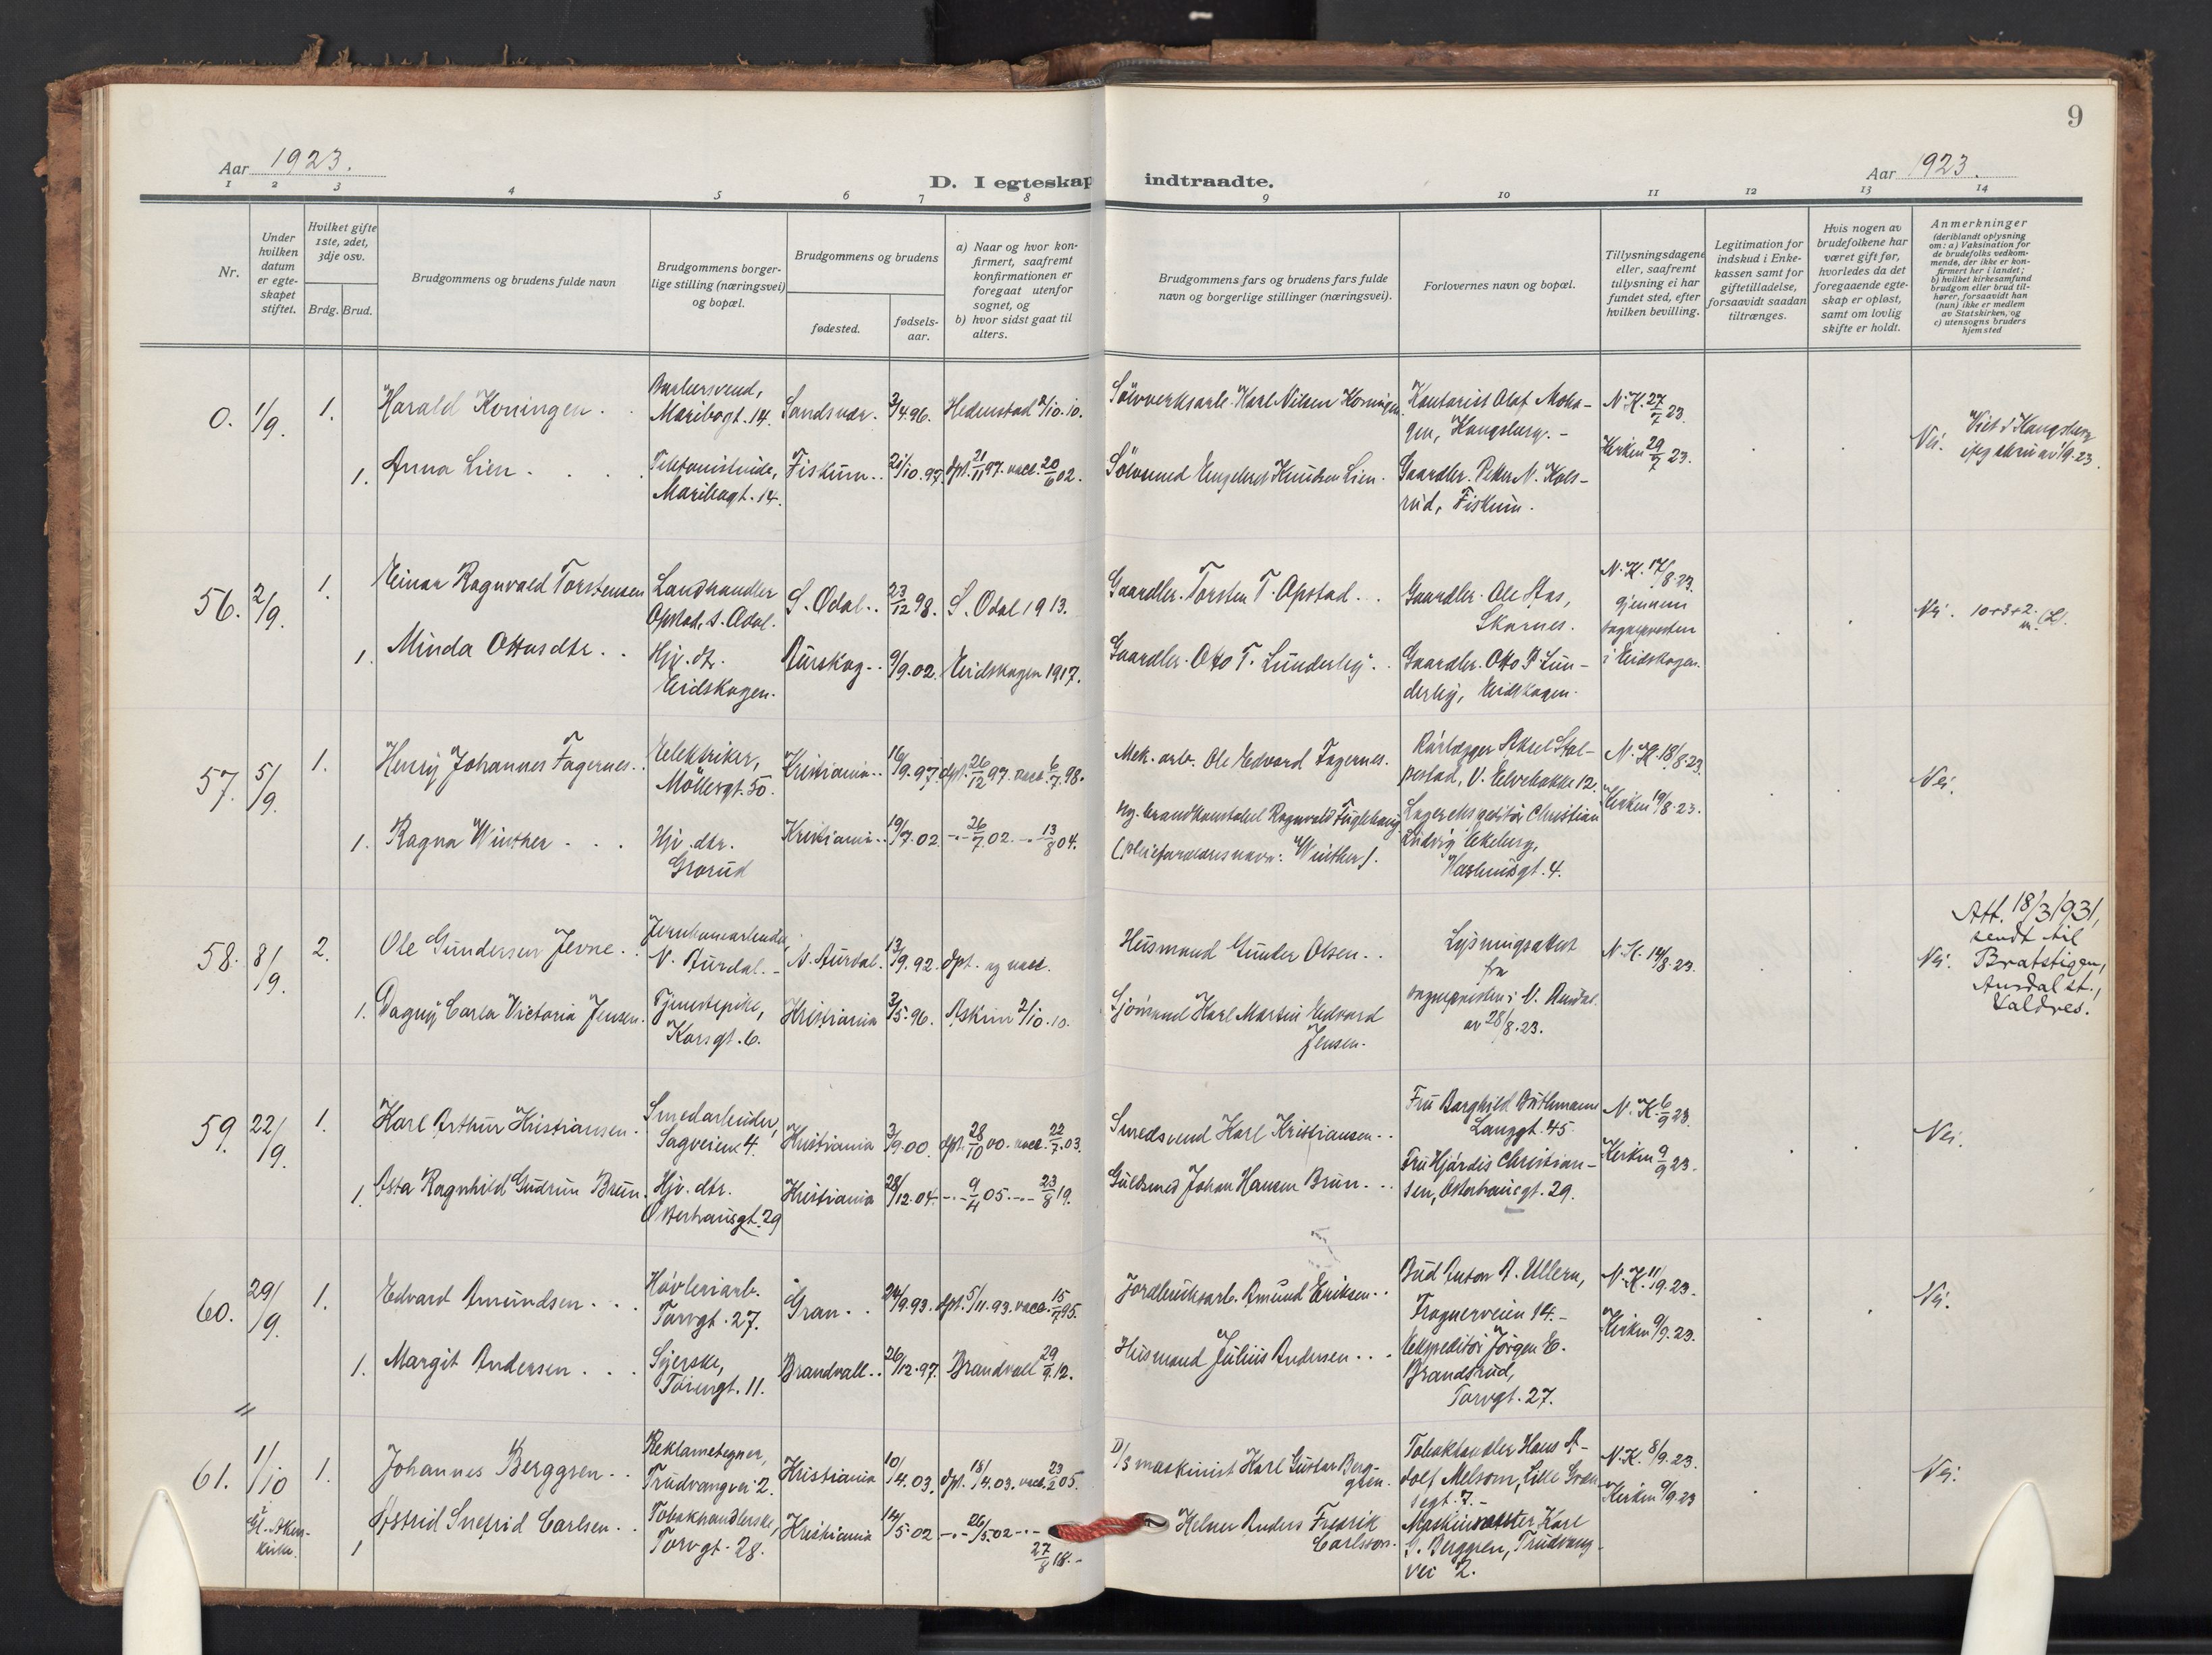 9
Aar 1923.
D. I egteskap indtraadte.
Aar 1923.
1 2 3 4 5 6 7 8 9 10 11 12 13 14
Nr.
Under
hvilken
datum
er egte-
skapet
stiftet.
Hvilket gifte
1ste, 2det,
3dje osv.
Brdg. Brud.
Brudgommens og brudens fulde navn
Brudgommens borger-
lige stilling (næringsvei)
og bopæl.
Brudgommens og brudens
fødested.
fødsels-
aar.
a) Naar og hvor kon-
firmert, saafremt
konfirmationen er
foregaat utenfor
sognet, og
b) hvor sidst gaat til
alters.
Brudgommens fars og brudens fars fulde
navn og borgerlige stillinger (næringsvei).
Forlovernes navn og bopæl.
Tillysningsdagene
eller, saafremt
tillysning ei har
fundet sted, efter
hvilken bevilling.
Legitimation for
indskud i Enke-
kassen samt for
giftetilladelse,
forsaavidt saadan
tiltrænges.
Hvis nogen av
brudefolkene har
været gift før,
hvorledes da det
foregaaende egte-
skap er opløst,
samt om lovlig
skifte er holdt.
Anmerkninger
(deriblandt oplysning
om: a) Vaksination for
de brudefolks vedkom-
mende, der ikke er kon-
firmert her i landet;
b) hvilket kirkesamfund
brudgom eller brud til-
hører, forsaavidt han
(hun) ikke er medlem
av Statskirken, og
c) utensogns bruders
hjemsted
0. 1/9. 1.
Harald Korningen.
Maribogt. 14.
Sandsvær. 3/4.96. Hedenstad 2/10.10.
Sölvverksarb. Karl Nilsen Korningen.
Kontorist Olaf Moha-
gen, Kongsberg.-
N.K. 27/7 23.
Kirken 29/7 23.
Nei. Viet i Kongsberg
1. Anna Lien.
Maribogt. 14.
Fiskum. 21/10.97. dpt. 21/11 97. vacc. 20/6 02.
Knudsen Lien.
Gaardbr. Peder N. Kols-
rud, Fiskum.
56. 2/9. 1.
Einar Ragnvald Torstensen
Landhandler
Opstad, S. Odal.
S. Odal. 23/12 98. S. Odal 1913.
Gaardbr. Torsten T. Opstad.
Gaardbr. Ole Stas,
Skarnes.
N.K. 17/8.23.
gjennem
sognepresten
i Eidskogen.
Nei. 10+3+2.
1. Minda Ottosdtr.
Hjv. dtr.
Eidskogen.
Aurskog. 9/9.02. Eidskogen 1917.
Gaardbr. Otto T. Lunderby.
Gaardbr. Otto T. Lun-
derby, Eidskogen.
57. 5/9. 1.
Henry Johannes Fagernes.
Elektriker,
Möllergt. 50.
Kristiania. 16/9.97. dpt. 26/12 97. vacc. 6/7.98.
Mek. arb. Ole Edvard Fagernes.
Rörlægger Aksel Stal-
pestad, V. Elvebakke 12.
N.K. 18/8.23.
Kirken 19/8.23.
Nei.
1. Ragna Winther.
Hjv. dtr.
Grorud
Kristiania. 19/7.02. -"- 26/7.02. -"- 13/8 04.
Ragnvald Fuglehaug
(pleieforældres navn: Winther).
Lagerekspeditör Christian
Ludvig Ekeberg,
58. 8/9. 2.
Ole Gundersen Jevne.
Jernbanearbeider,
N. Aurdal.-
N. Aurdal. 13/9.92. dpt. og vacc.
Husmand Gunder Olsen.
Lysningsattest
fra
sognepresten i N. Aurdal
av 28/8.23.
N.K. 14/8.23.
Nei.
Att. 18/3 1931,
sendt til
Bratstigen,
Aurdal st.,
Valdres.
1. Dagny Carla Victoria Jensen.
Tjenestepike,
Korsgt. 6.
Kristiania 3/5.96. Askim 2/10.10.
Sjömand Karl Martin Edvard
Jensen.
59. 22/9. 1.
Karl Arthur Kristiansen.
Smedarbeider,
Sagveien 4.
Kristiania 3/9.00. dpt. 28/10 00. vacc. 22/7.03.
Smedsvend Karl Kristiansen.
Fru Borghild Buthmann
Langgt. 45
N.K. 6/9 23.
Kirken 9/9 23.
Nei.
1. Åsta Ragnhild Gudrun Brun.
Hjv. dtr.
Osterhausgt. 29
Kristiania 28/12.04. -"- 9/4 05. -"- 23/8 19.
Guldsmed Johan Hansen Brun.
Fru Hjördis Christian-
sen, Osterhausgt. 29.
60. 29/9. 1.
Edvard Amundsen.
Hövleriarb.
Torvgt. 27.
Gran. 24/9.93. dpt. 5/11.93. vacc. 15/7 95.
Jordbruksarb. Amund Eriksen.
Bud Anton A. Ullern,
Frognerveien 14.-
N.K. 11/9.23.
Kirken 9/9.23.
Nei.
1. Margit Andersen.
Syerske,
Töiengt. 11.
Brandvall. 26/12.97. Brandvall 29/9.12.
Husmand Julius Andersen.
Ekspeditör Jörgen E.
Brandsrud,
Torvgt. 27.
61. 1/10 1.
Johannes Berggren.
Reklametegner,
Trudvangvei 2.
Kristiania 10/4.03. dpt. 18/4.03. vacc. 23/2 05.
D/S maskinist Karl Gustav Berg-
gren.
Tobakhandler Hans A-
dolf Melsom, Lille Græn
segt. 7.-
N.K. 8/9.23.
Kirken 9/9.23
Nei.
i Gl. Aker
kirke.
1 Astrid Snefrid Carlsen.
Tobakhandlerske,
Torvgt. 28.
Kristiania 14/5.02 -"- 26/5.02 -"-
27/8 18.-
Kelner Anders Fredrik
Carlsson.
Maskinmester Karl
G. Berggren, Trudvang-
vei 2.